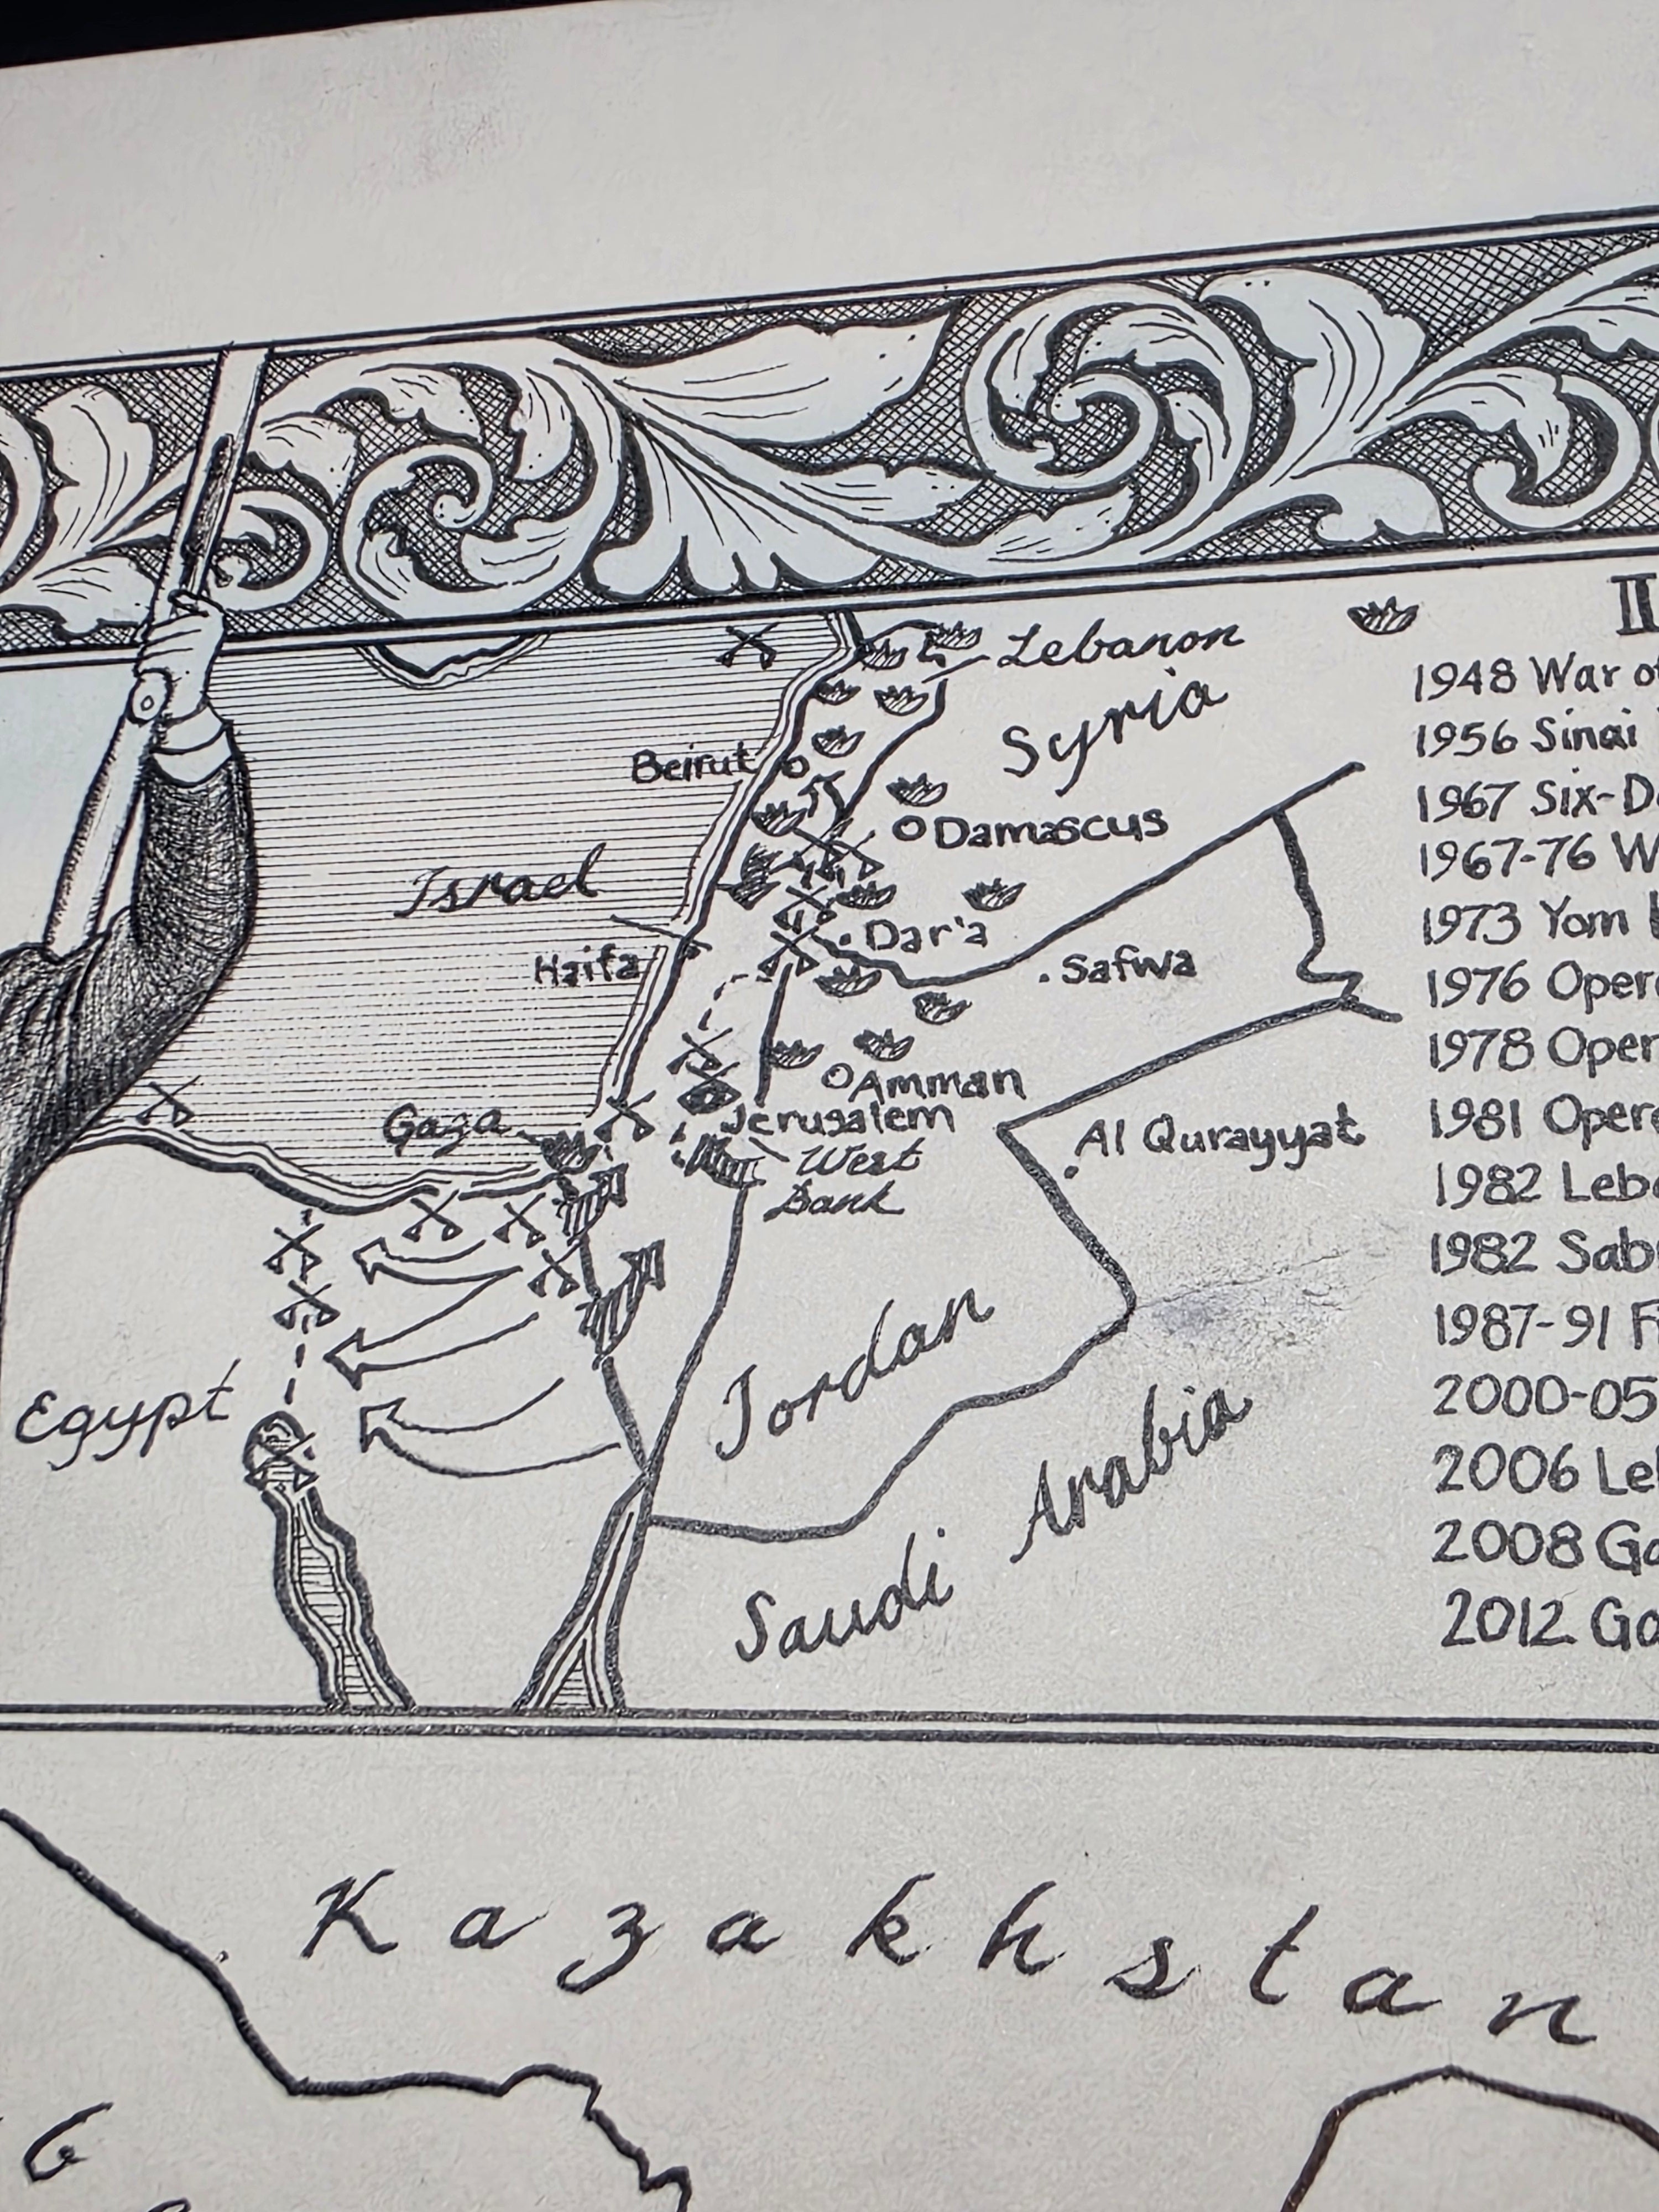 Lebanon
Syria
Beirut
Damascus
Israel
Dar'a
Haifa
Safwa
Amman
Gaza
Jerusalem
Al Qurayyat
West
Bank
Jordan
Egypt
Saudi Arabia
II
1948 War of
1956 Sinai
1967 Six-D
1967-76 W
1973 Yom
1976 Oper
1978 Oper
1981 Oper
1982 Leb
1982 Sab
1987-91 F
2000-05
2006 Le
2008 Ga
2012 Ga
Kazakhstan